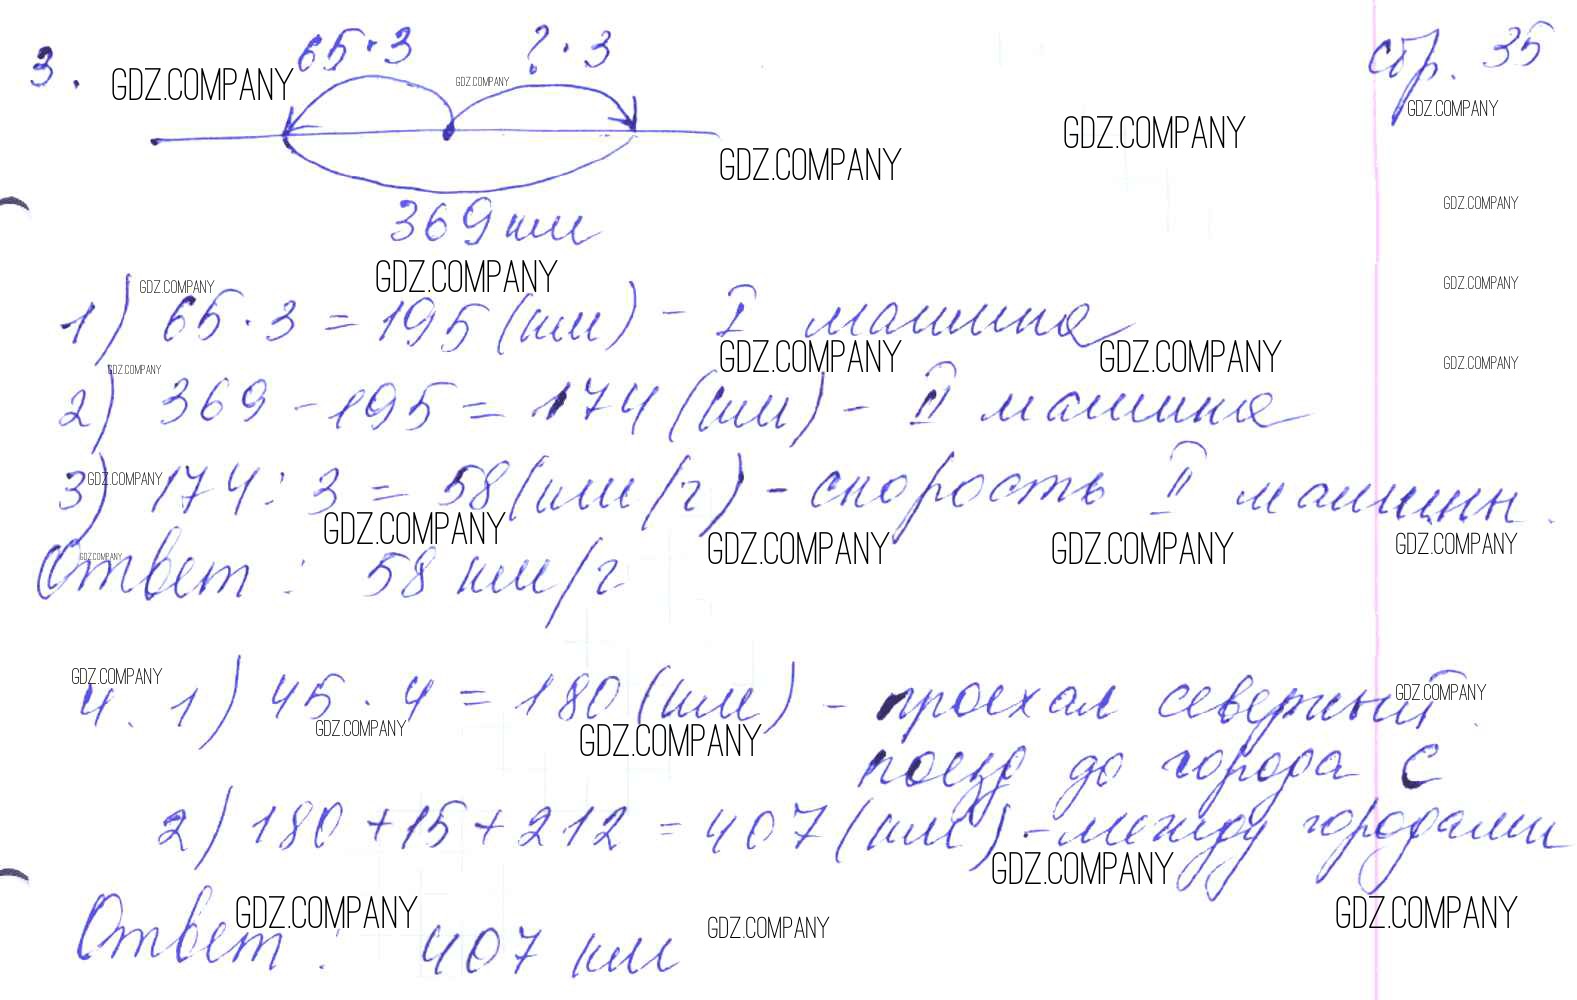 3. 65·3 ?·3 стр. 35
GDZ.COMPANY
GDZ.COMPANY
GDZ.COMPANY
GDZ.COMPANY
GDZ.COMPANY
GDZ.COMPANY
369 км
GDZ.COMPANY
GDZ.COMPANY
GDZ.COMPANY
1) 65·3 = 195 (км) - I машина
GDZ.COMPANY
GDZ.COMPANY
GDZ.COMPANY
GDZ.COMPANY
2) 369 - 195 = 174 (км) - II машина
GDZ.COMPANY
3) 174 : 3 = 58 (км/ч) - скорость II машины.
GDZ.COMPANY
GDZ.COMPANY
GDZ.COMPANY
GDZ.COMPANY
GDZ.COMPANY
Ответ: 58 км/ч
GDZ.COMPANY
GDZ.COMPANY
4. 1) 45·4 = 180 (км) - проехал северный
GDZ.COMPANY
GDZ.COMPANY
поезд до города С
2) 180 + 15 + 212 = 407 (км) - между городами
GDZ.COMPANY
GDZ.COMPANY
GDZ.COMPANY
GDZ.COMPANY
Ответ: 407 км